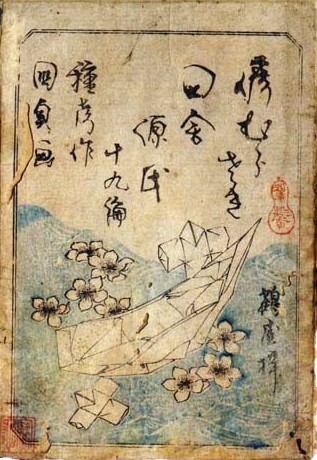 偐むらさき
田舎
源氏
十九編
種彦作
国貞画
鶴屋梓